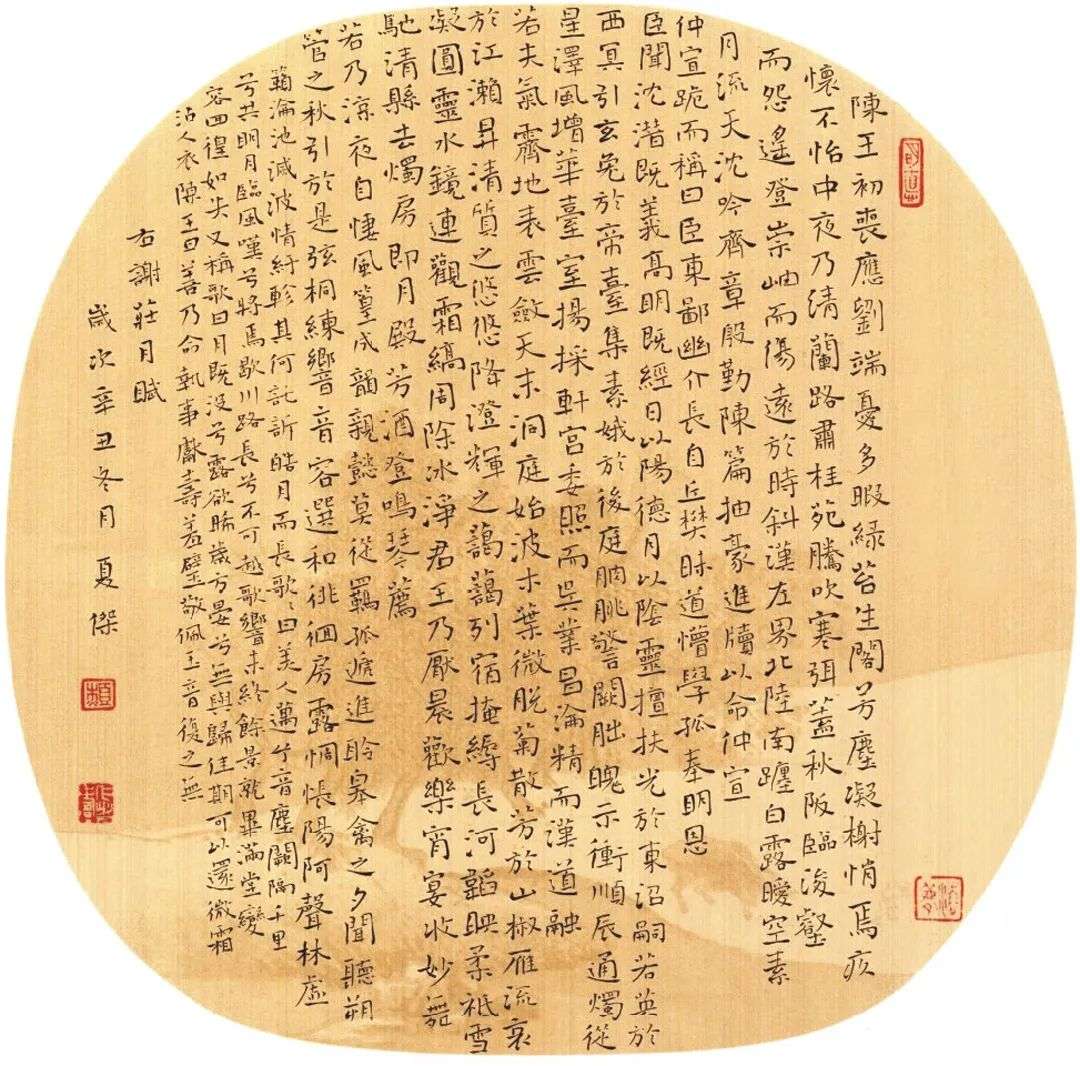 陳王初喪應劉端憂多暇綠苔生閣芳塵凝榭悄焉疚
懷不怡中夜乃清蘭路肅桂苑騰吹寒弭蓋秋阪臨浚壑
而怨遙登崇岫而傷遠於時斜漢左界北陸南躔白露曖空素
月流天沈吟齊章殷勤陳篇抽豪進牘以命仲宣
仲宣跪而稱曰臣東鄙幽介長自丘樊昧道懵學孤奉明恩
臣聞沈潛既義高明既經日以陽德月以陰靈擅扶光於東沼嗣若英於
西冥引玄兔於帝臺集素娥於後庭朒朓警闕朏魄示衝順辰通燭從
星澤風增華臺室揚採軒宮委照而吳業昌淪精而漢道融
若夫氣霽地表雲斂天末洞庭始波木葉微脫菊散芳於山椒雁流哀
於江瀨昇清質之悠悠降澄輝之藹藹列宿掩縟長河韜映柔祇雪
凝圓靈水鏡連觀霜縞周除冰淨君王乃厭晨歡樂宵宴收妙舞
馳清縣去燭房即月殿芳酒登鳴琴薦
若乃涼夜自悽風篁成韻親懿莫從羈孤遞進聆皋禽之夕聞聽朔
管之秋引於是弦桐練響音容選和徘徊房露惆悵陽阿聲林虛
籟淪池滅波情紆軫其何託訴皓月而長歌歌曰美人邁兮音塵闕隔千里
兮共明月臨風嘆兮將焉歇川路長兮不可越歌響未終餘景就畢滿堂變
容回徨如失又稱歌曰月既沒兮露欲晞歲方晏兮無與歸佳期可以還微霜
沾人衣陳王曰善乃命執事獻壽羞璧敬佩玉音復之無
右謝莊月賦
歲次辛丑冬月夏傑